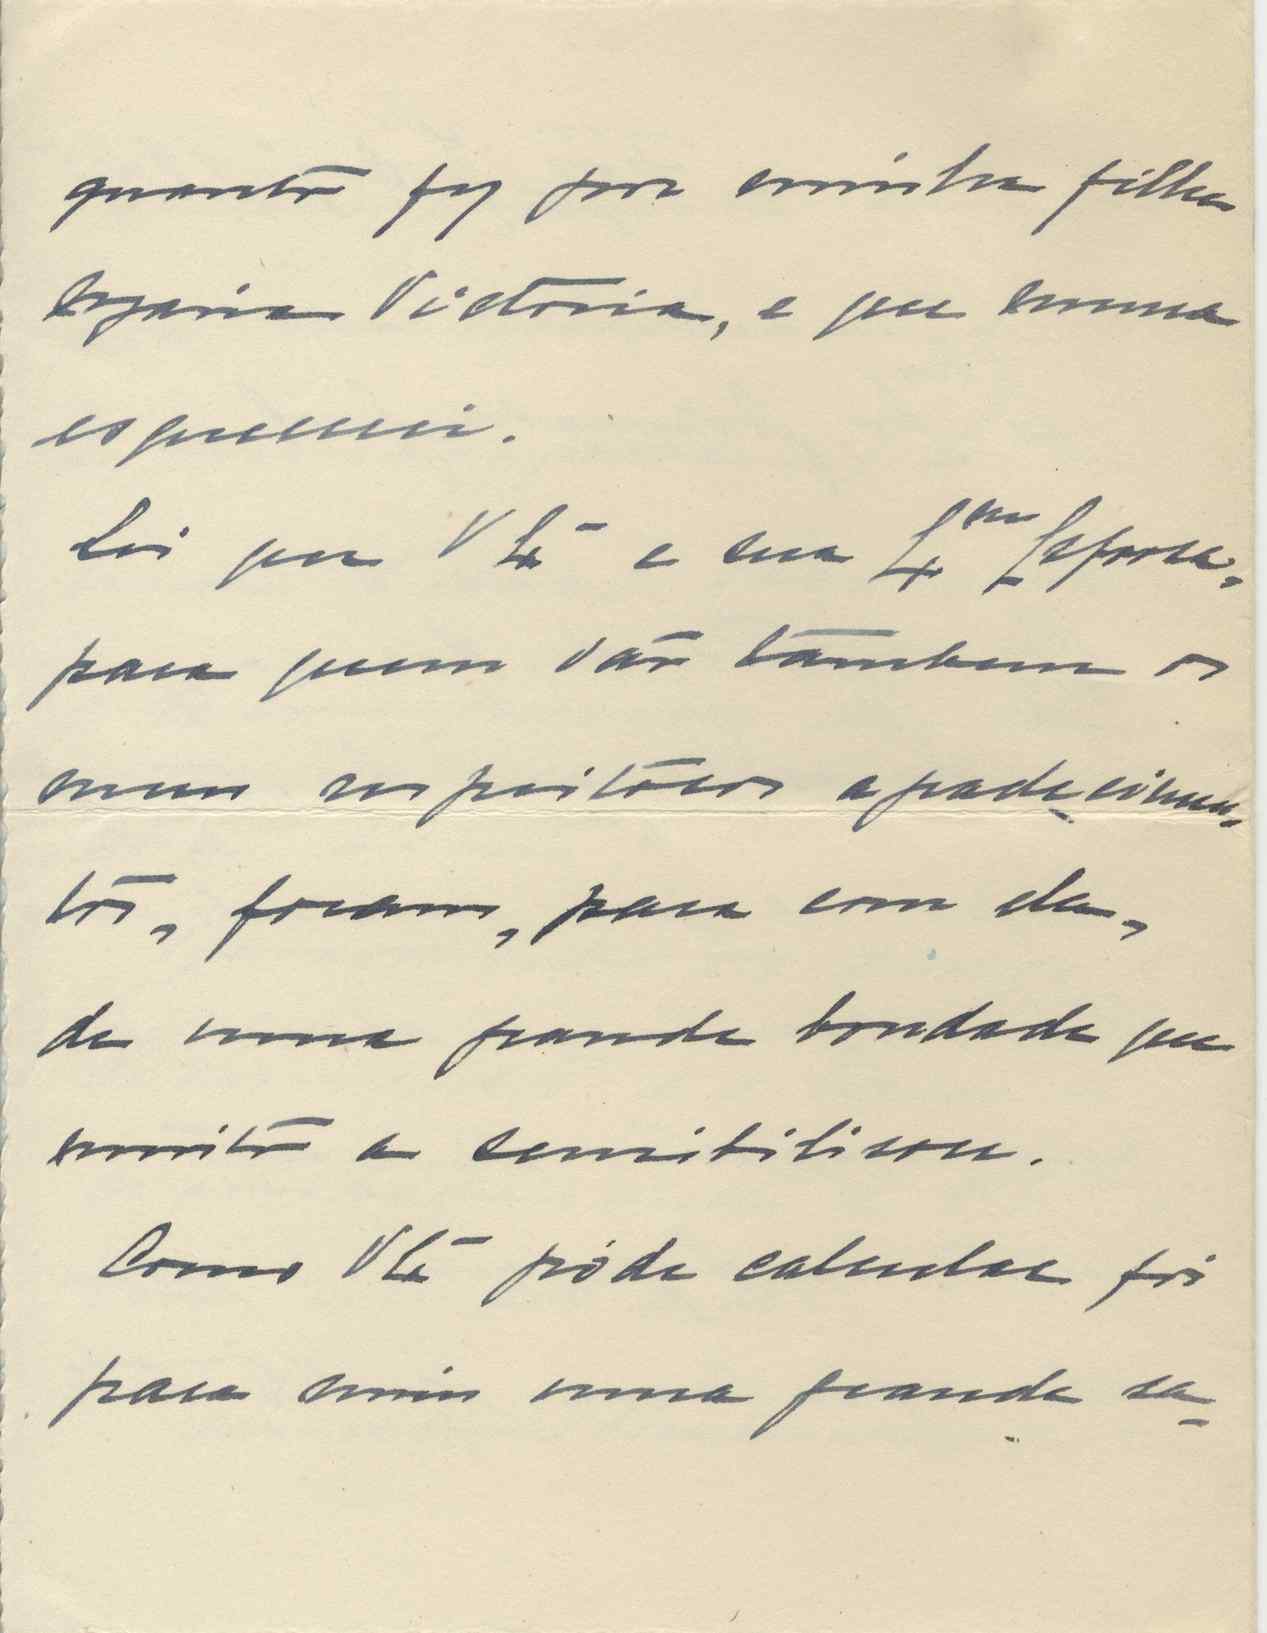 quanto fez por minha filha
Maria Victoria, e que nunca
esquecerei.
Sei que V Exª e sua Exma Esposa,
para quem vão tambem os
meus respeitosos agradecimen-
tos, foram, para com ela,
de uma grande bondade que
muito a sensibilisou.
Como V Exª póde calcular foi
para mim uma grande sa-